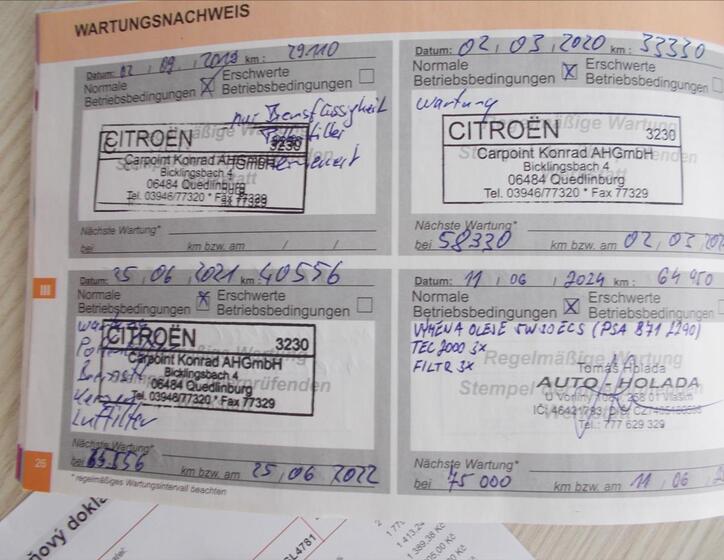 WARTUNGSNACHWEIS
Datum: 02, 09, 2019 km: 29110
Normale Betriebsbedingungen X Erschwerte Betriebsbedingungen
nur Bremsflüssigkeit
Pollenfilter
erneuert
CITROËN 3230
Carpoint Konrad AHGmbH
Bicklingsbach 4
06484 Quedlinburg
Tel. 03946/77320 * Fax 77329
Nächste Wartung*
bei km bzw. am / /
Datum: 02, 03, 2020 km: 33330
Normale Betriebsbedingungen X Erschwerte Betriebsbedingungen
Wartung
CITROËN 3230
Carpoint Konrad AHGmbH
Bicklingsbach 4
06484 Quedlinburg
Tel. 03946/77320 * Fax 77329
Nächste Wartung*
bei 58330 km bzw. am 02, 03,
III
Datum: 25, 06, 2021 km: 40556
Normale Betriebsbedingungen X Erschwerte Betriebsbedingungen
CITROËN 3230
Carpoint Konrad AHGmbH
Bicklingsbach 4
06484 Quedlinburg
Tel. 03946/77320 * Fax 77329
Luftfilter
Nächste Wartung*
bei km bzw. am 25, 06, 2022
* regelmäßiges Wartungsintervall beachten
26
Datum: 11, 06, 2024 km: 64950
Normale Betriebsbedingungen X Erschwerte Betriebsbedingungen
VÝMĚNA OLEJE 5W30 ECS (PSA B71 2290)
TEC 2000 3x
FILTR 3x
Regelmäßige Wartung
Tomáš Holada
AUTO - HOLADA
Tel.: 777 629 329
Nächste Wartung*
bei 75 000 km bzw. am 11, 06,